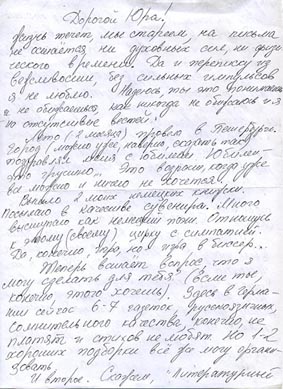 Дорогой Юра!
Жизнь течет, мы стареем, на письма
не остается ни духовных сил, ни физи-
ческого времени. Да и переписку из
вежливости, без сильных импульсов
я не люблю. Надеюсь, ты это понимаешь
и не обижаешься, как никогда не обижаюсь и я
на отсутствие вестей.
Лето (2 месяца) провел в Петербурге.
Город (можно уже, наверно, сказать так)
поздравлял меня с юбилеем. Юбилей –
это грустно... Это возраст, когда уже
все можно и ничего не хочется.
Вышло 2 моих немецких книжки.
Посылаю в качестве сувенира. Много
выступаю как немецкий поэт. Отношусь
к этому (своему) цирку с симпатией.
Да, конечно, игра, но игра в бисер...
Теперь встает вопрос, что я
могу сделать для тебя? (Если ты,
конечно, этого хочешь). Здесь в Герма-
нии сейчас 6-7 газеток русскоязычных,
сомнительного качества, конечно, не
платят и стихов не любят. Но 1-2
хороших подборки всё же могу органи-
зовать.
И второе. Скажем, "Литературный